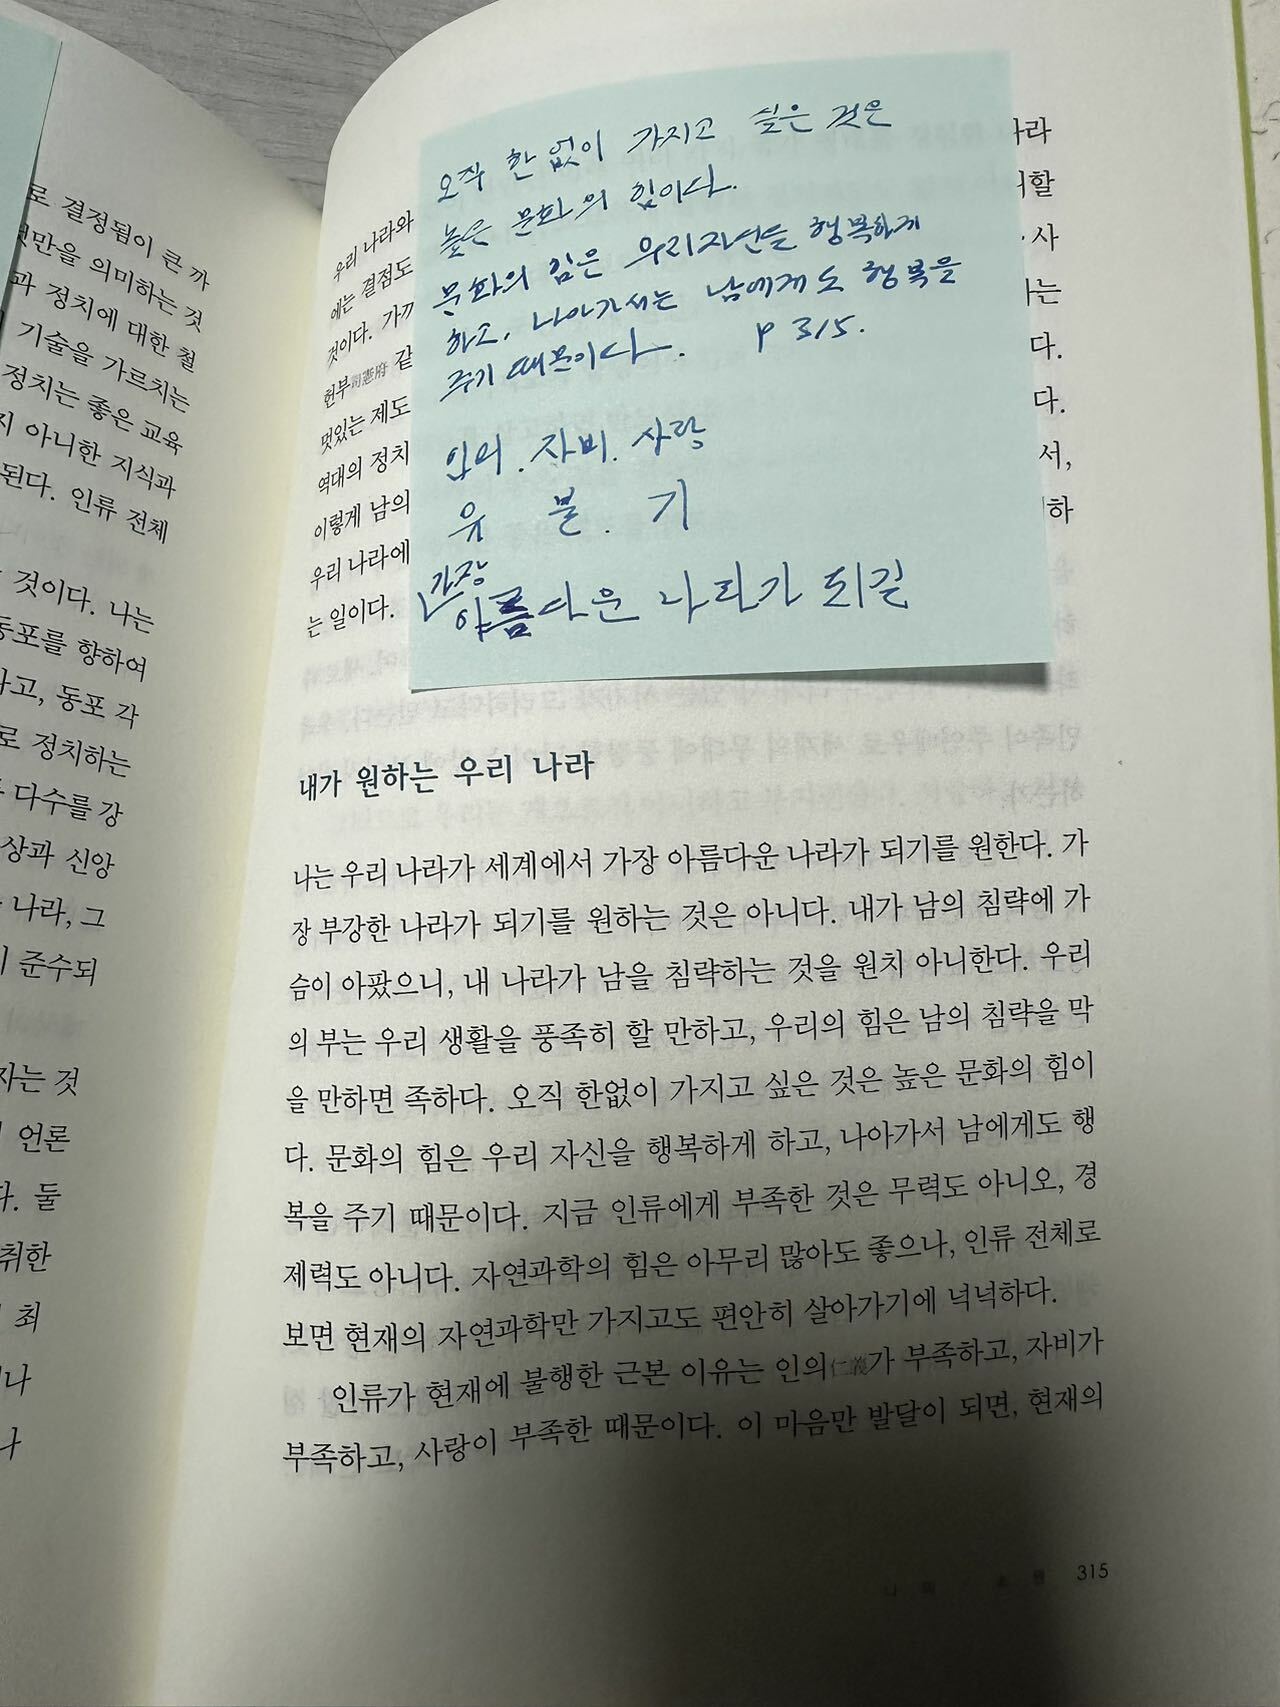 로 결정됨이 큰 까
것만을 의미하는 것
과 정치에 대한 철
기술을 가르치는
정치는 좋은 교육
지 아니한 지식과
된다. 인류 전체
것이다. 나는
동포를 향하여
하고, 동포 각
로 정치하는
다수를 강
상과 신앙
나라, 그
준수되
자는 것
언론
다. 둘
취한
최
나
오직 한없이 가지고 싶은 것은
높은 문화의 힘이다.
문화의 힘은 우리자신을 행복하게
하고, 나아가서는 남에게도 행복을
주기 때문이다. P 315.
인의. 자비. 사랑
유 불. 기
가장
아름다운 나라가 되길
우리 나라와
에는 결점도
것이다. 가까
헌부司憲府 같
멋있는 제도
역대의 정치
이렇게 남의
우리 나라에
는 일이다.
사
다.
다.
서,
내가 원하는 우리 나라
나는 우리 나라가 세계에서 가장 아름다운 나라가 되기를 원한다. 가
장 부강한 나라가 되기를 원하는 것은 아니다. 내가 남의 침략에 가
슴이 아팠으니, 내 나라가 남을 침략하는 것을 원치 아니한다. 우리
의 부는 우리 생활을 풍족히 할 만하고, 우리의 힘은 남의 침략을 막
을 만하면 족하다. 오직 한없이 가지고 싶은 것은 높은 문화의 힘이
다. 문화의 힘은 우리 자신을 행복하게 하고, 나아가서 남에게도 행
복을 주기 때문이다. 지금 인류에게 부족한 것은 무력도 아니오, 경
제력도 아니다. 자연과학의 힘은 아무리 많아도 좋으나, 인류 전체로
보면 현재의 자연과학만 가지고도 편안히 살아가기에 넉넉하다.
인류가 현재에 불행한 근본 이유는 인의仁義가 부족하고, 자비가
부족하고, 사랑이 부족한 때문이다. 이 마음만 발달이 되면, 현재의
나의 소원 315